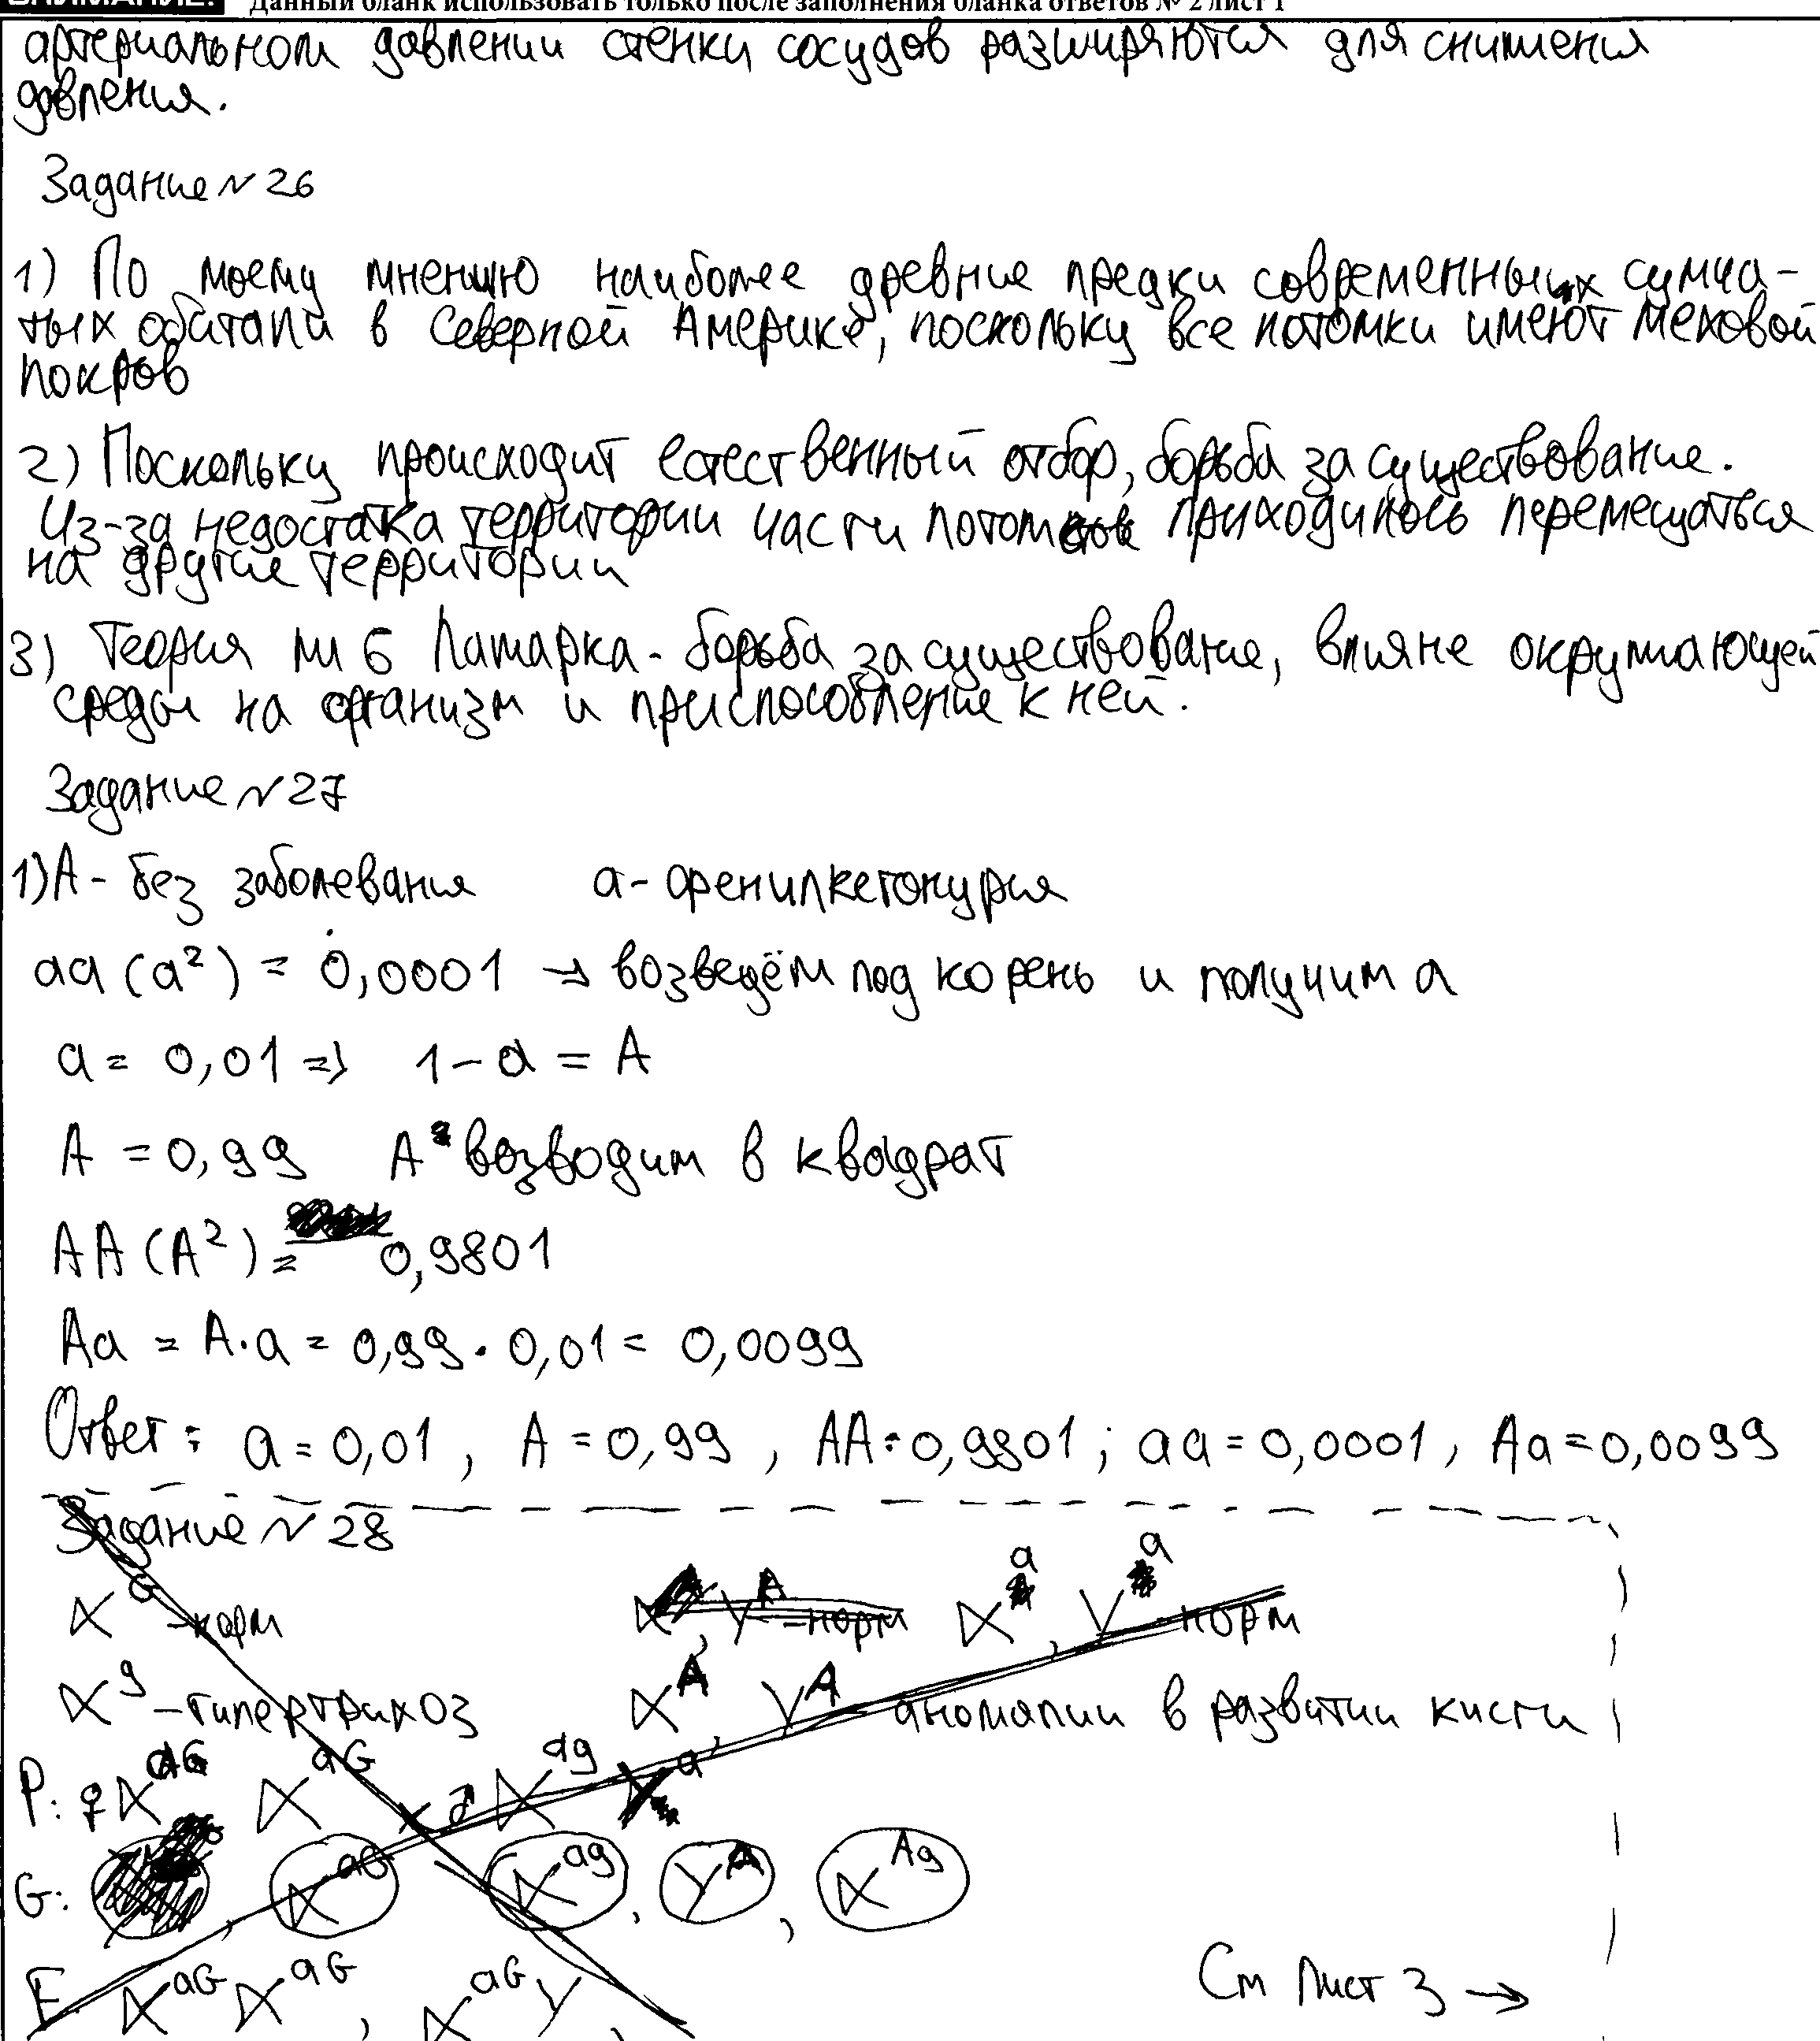 Данный бланк использовать только после заполнения бланка ответов № 2 лист 1
артериальном давлении стенки сосудов разширяются для снишения
довления.
Задание № 26
1) По моему мнению наиболее древние предки современных сумча-
тых обитали в Северной Америке, поскольку все потомки имеют меховой
покров
2) Поскольку происходит естественный отбор, борьба за существование.
Из-за недостатка территории части потомков приходилось перемещаться
на другие территории
3) Теория Ламарка - борьба за существование, влияне окружающей
среды на организм и приспособление к ней.
Задание № 27
1) А - без заболевания а - фенилкетонурия
aa (a²) = 0,0001 → возведём под корень и получим a
a = 0,01 => 1 - a = A
A = 0,99 A возводим в квадрат
AA (A²) = 0,9801
Aa = A · a = 0,99 · 0,01 = 0,0099
Ответ: a = 0,01 , A = 0,99 , AA = 0,9801 ; aa = 0,0001 , Aa = 0,0099
Задание № 28
X^G - норм X Y^A - норм X^a, Y^a - норм
X^g - гипертрихоз X^A, Y^A - аномалии в развитии кисти
P: ♀ X^aG X^aG x ♂ X^ag
G: X^aG X^ag, Y^A, X^Ag
F X^aG X^aG, X^aG Y,
См Лист 3 →